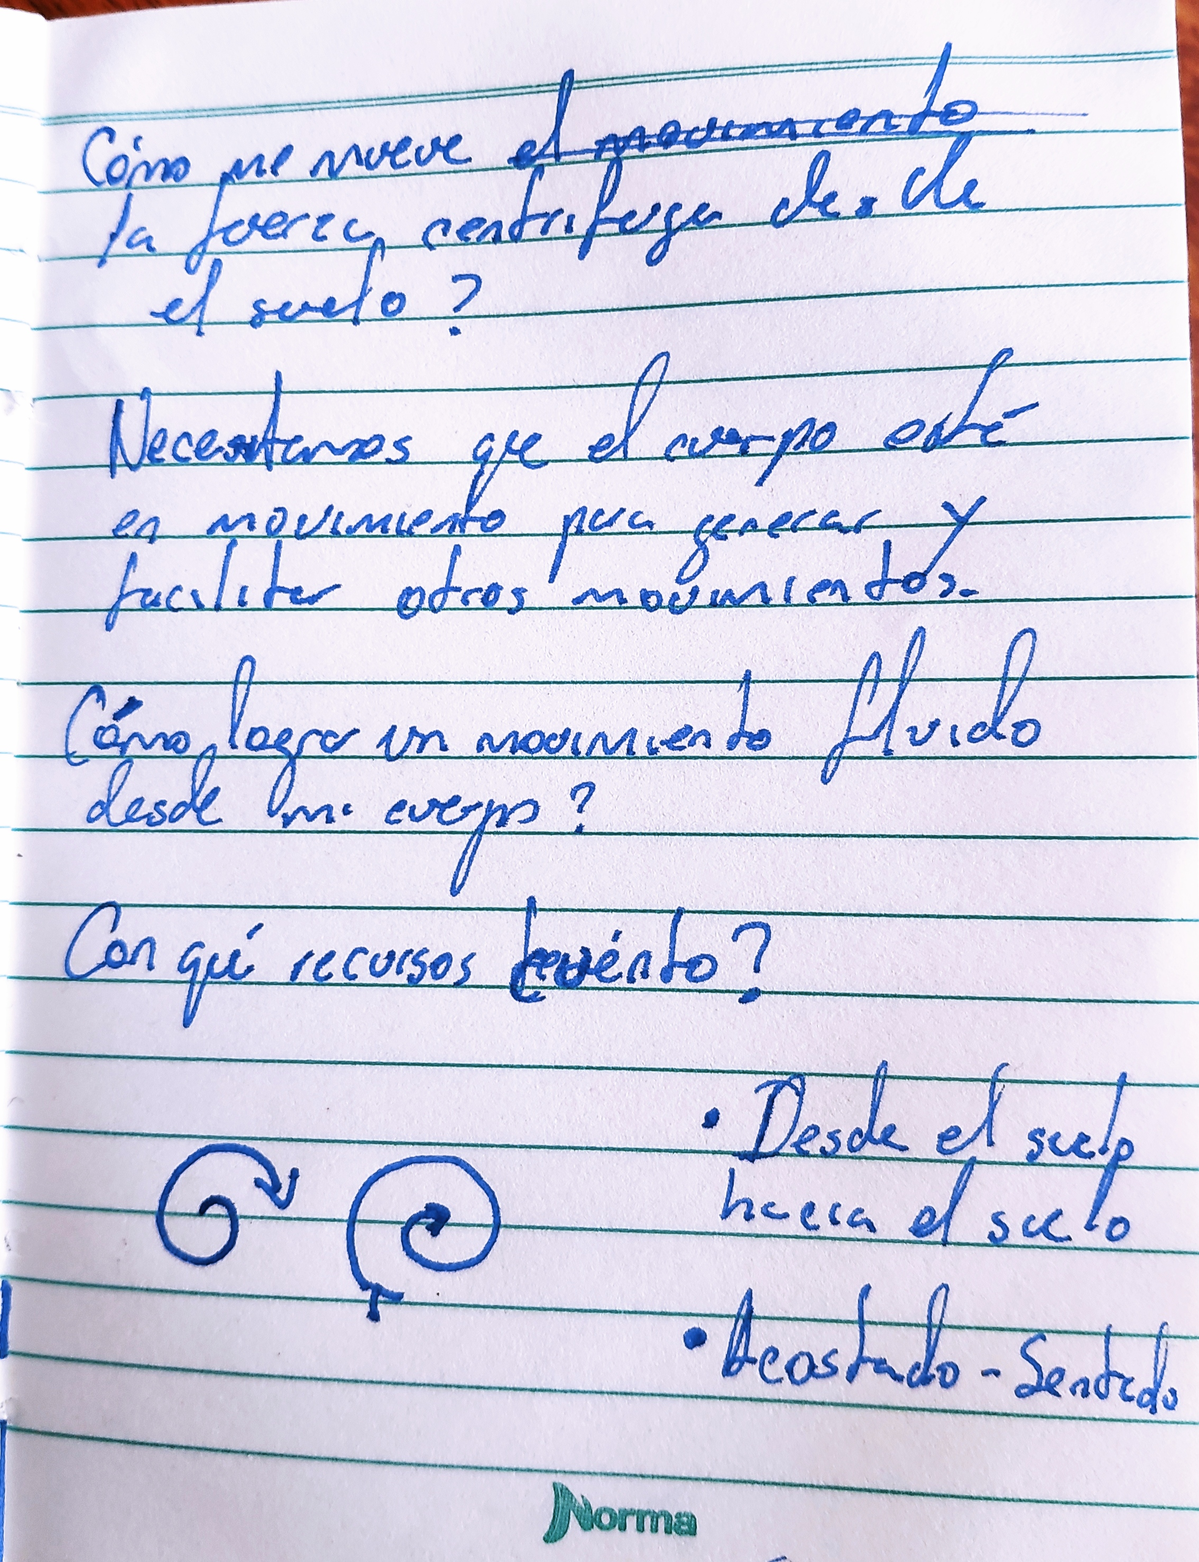 Cómo me mueve el movimiento
la fuerza centrifuga desde
el suelo?
Necesitamos que el cuerpo esté
en movimiento para generar y
facilitar otros movimientos.
Cómo logro un movimiento fluido
desde mi cuerpo?
Con qué recursos cuénto?
• Desde el suelo
hacia el suelo
• Acostado - Sentado
Norma